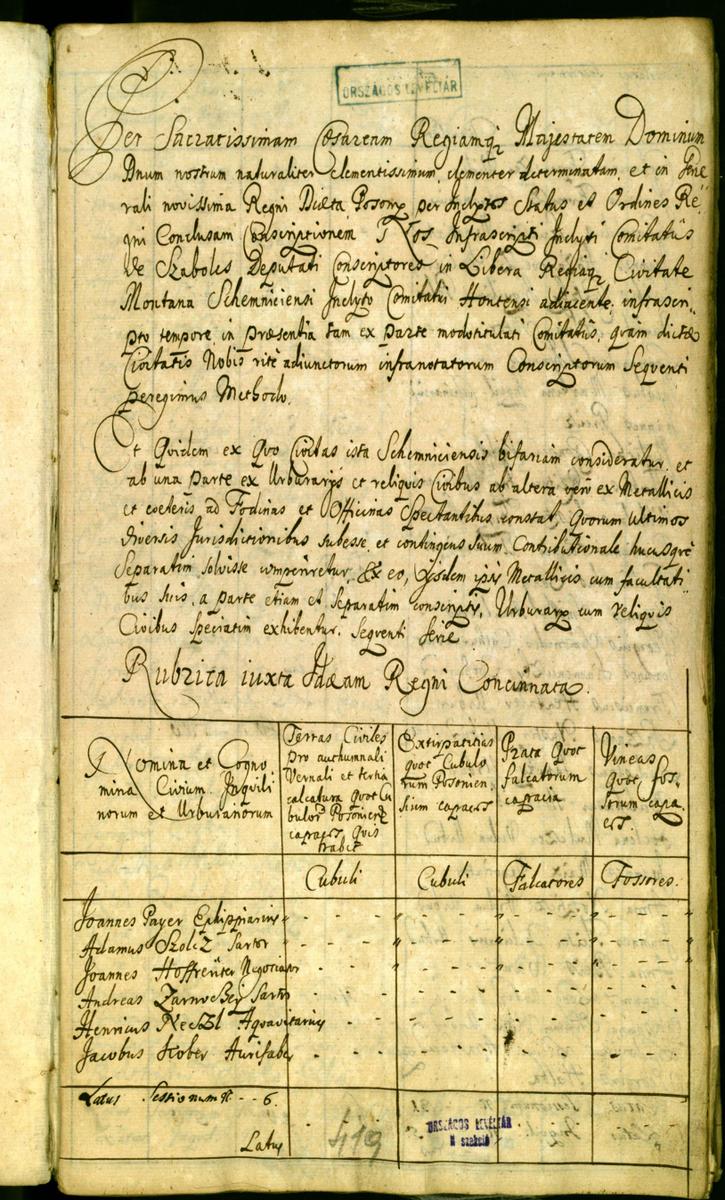 ORSZÁGOS LEVÉLTÁR
Per Sacratissimam Cæsaream Regiamq; Majestatem Dominum
Dnum nostrum naturaliter clementissimum, clementer determinatam, et in Gene
rali novissima Regni Diæta Poson. per Inclytos Status et Ordines Re
gni Conclusam Conscriptionem Nos Infrascripti Inclyti Comitatûs
de Szabolcs Deputati Conscriptores in Libera Regiaq; Civitate
Montana Schemniciensi Inclyto Comitatui Hontensi adiacente, infrascri
pto tempore, in præsentia tam ex parte modotitulati Comitatûs, quam dictæ
Civitatis Nobis ritè adiunctorum infranotatorum Conscriptorum Sequenti
peregimus Methodo.
Et Quidem ex Quo Civitas ista Schemniciensis bifariam consideratur, et
ab una parte ex Urburarijs et reliquis Civibus ab altera verò ex Metallicis
et cœteris ad Fodinas et Officinas Spectantibus constat, Quorum Ultimos
diversis Jurisdictionibus subesse, et contingens suum Contributionale hucusque
Separatim solvisse comperiretur, Ex eo, ijsdem ipsis Metallicis cum facultati
bus suis, a parte etiam et Separatim conscriptis, Urburarij cum reliquis
Civibus speciatim exhibentur, Sequenti serie
Rubrica iuxta Idæam Regni Concinnata.
Nomina et Cogno
mina Civium, Inquili
norum et Urburariorum
Terras Civiles
pro authumnali
Vernali et tertia
calcatura quot Cu
bulor Posoniens
capaces quis
trabit
Cubuli
Extirpatitias
quot Cubulo
rum Posonien
sium capaces
Cubuli
Prata quot
falcatorum
capacia
Falcatores
Vineas
quot fos
sorum capa
ces.
Fossores.
Joannes Payer Ephippiarius
Adamus Szolcz Sartor
Joannes Hoffreiter Negociator
Andreas Sartor
Henricus Aquavitarius
Jacobus Aurifaber
Latus Sessionum N. - - 6.
Latus
419
ORSZÁGOS LEVÉLTÁR
N szekció